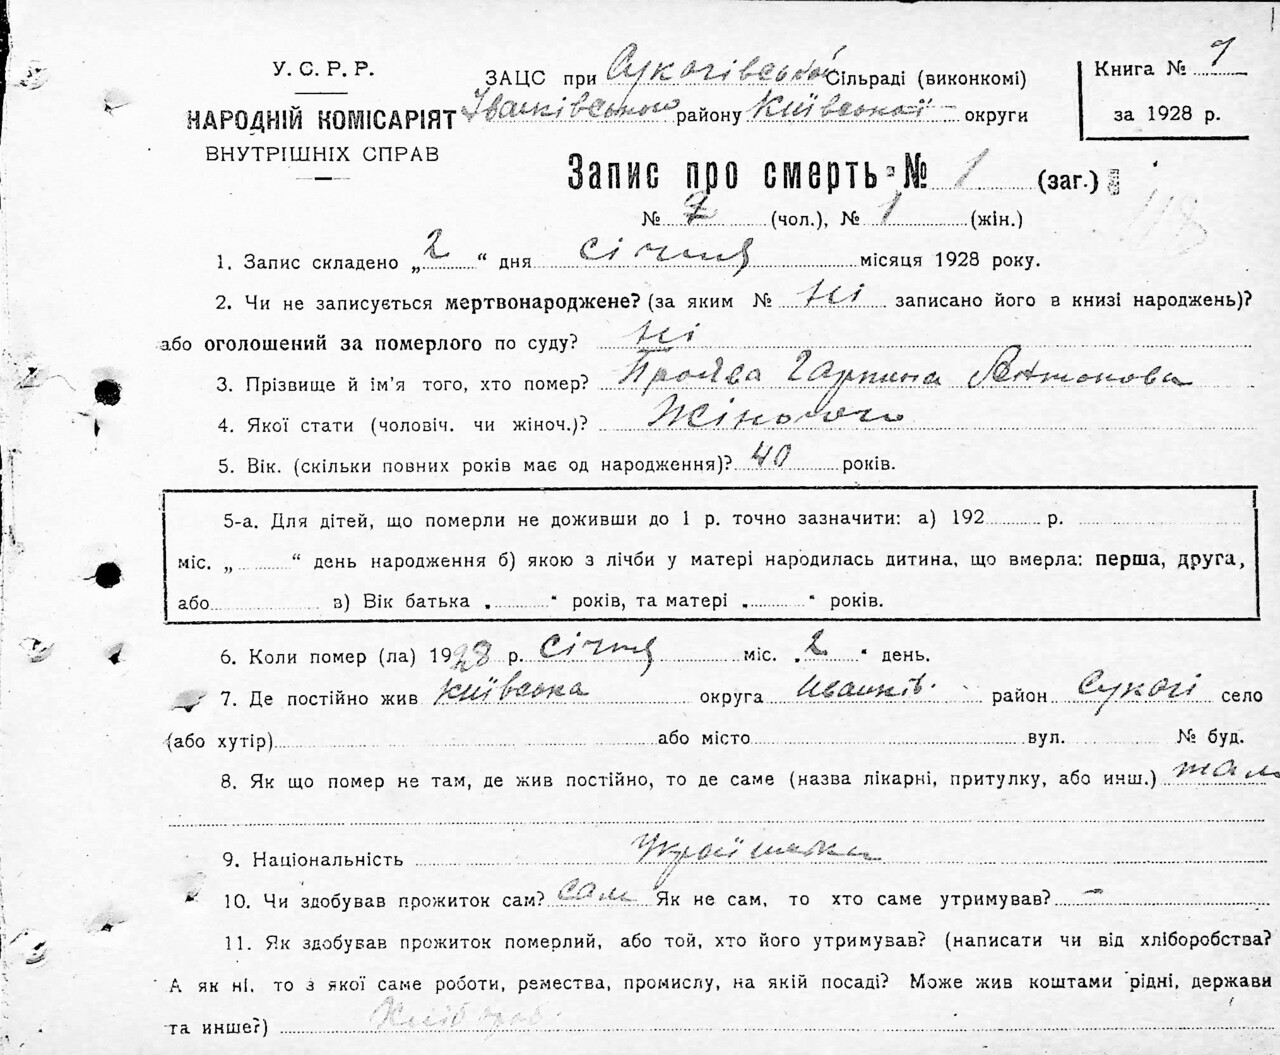 У. С. Р. Р.
НАРОДНІЙ КОМІСАРІЯТ
ВНУТРІШНІХ СПРАВ
ЗАЦС при Сукачівській Сільраді (виконкомі)
Іванківського району Київської округи
Книга №
за 1928 р.
Запис про смерть № 1 (заг.)
№ (чол.), № 1 (жін.)
1. Запис складено „2“ дня січня місяця 1928 року.
2. Чи не записується мертвонароджене? (за яким № Ні записано його в книзі народжень)?
або оголошений за померлого по суду? Ні
3. Прізвище й ім'я того, хто помер? Гарпина Антонова
4. Якої стати (чоловіч. чи жіноч.)? Жіночого
5. Вік. (скільки повних років має од народження)? 40 років.
5-а. Для дітей, що померли не доживши до 1 р. точно зазначити: а) 192 р.
міс. „ “ день народження б) якою з лічби у матері народилась дитина, що вмерла: перша, друга,
або в) Вік батька „ “ років, та матері „ “ років.
6. Коли помер (ла) 1928 р. січня міс. „2“ день.
7. Де постійно жив Київська округа Иванків. район Сукачі село
(або хутір) або місто вул. № буд.
8. Як що помер не там, де жив постійно, то де саме (назва лікарні, притулку, або инш.) там
9. Національність Українка
10. Чи здобував прожиток сам? сам Як не сам, то хто саме утримував? —
11. Як здобував прожиток померлий, або той, хто його утримував? (написати чи від хліборобства?
А як ні, то з якої саме роботи, ремества, промислу, на якій посаді? Може жив коштами рідні, держави
та инше?)